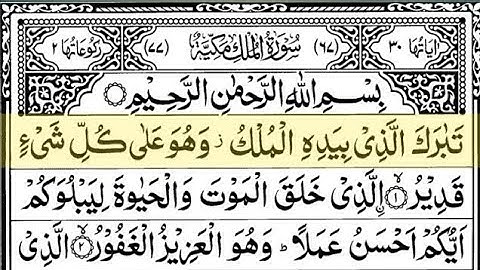 اٰیَاتُهَا ۳۰ (۶۷) سُوْرَةُ الْمُلْكِ مَكِّیَّةٌ (۷۷) رُكُوْعَاتُهَا ۲
بِسْمِ اللّٰهِ الرَّحْمٰنِ الرَّحِیْمِ
تَبٰرَكَ الَّذِیْ بِیَدِهِ الْمُلْكُ ز وَهُوَ عَلٰی كُلِّ شَیْءٍ
قَدِیْرُ ۙ﴿۱﴾ ۨالَّذِیْ خَلَقَ الْمَوْتَ وَالْحَیٰوةَ لِیَبْلُوَكُمْ
اَیُّكُمْ اَحْسَنُ عَمَلًا ؕ وَهُوَ الْعَزِیْزُ الْغَفُوْرُ ﴿۲﴾ الَّذِیْ